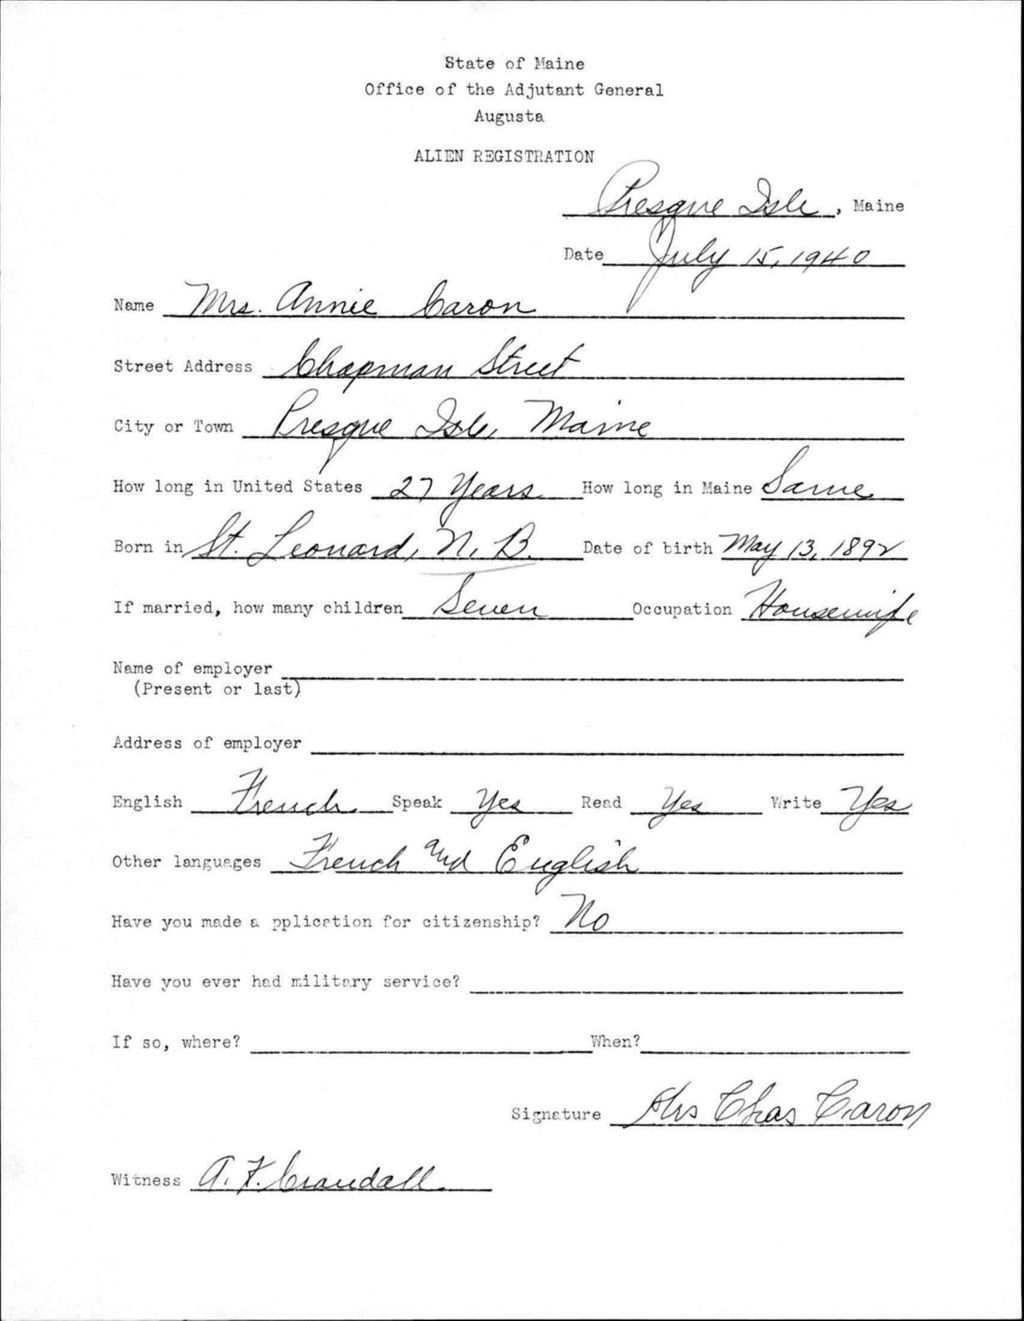 State of Maine
Office of the Adjutant General
Augusta
ALIEN REGISTRATION
Presque Isle, Maine
Date July 15, 1940
Name Mrs. Annie Caron
Street Address Chapman Street
City or Town Presque Isle, Maine
How long in United States 27 Years How long in Maine Same
Born in St. Leonard, N. B. Date of birth May 13, 1892
If married, how many children Seven Occupation Housewife
Name of employer
(Present or last)
Address of employer
English French Speak Yes Read Yes Write Yes
Other languages French and English
Have you made a pplication for citizenship? No
Have you ever had military service?
If so, where? When?
Signature Mrs Chas Caron
Witness A. F. Crandall